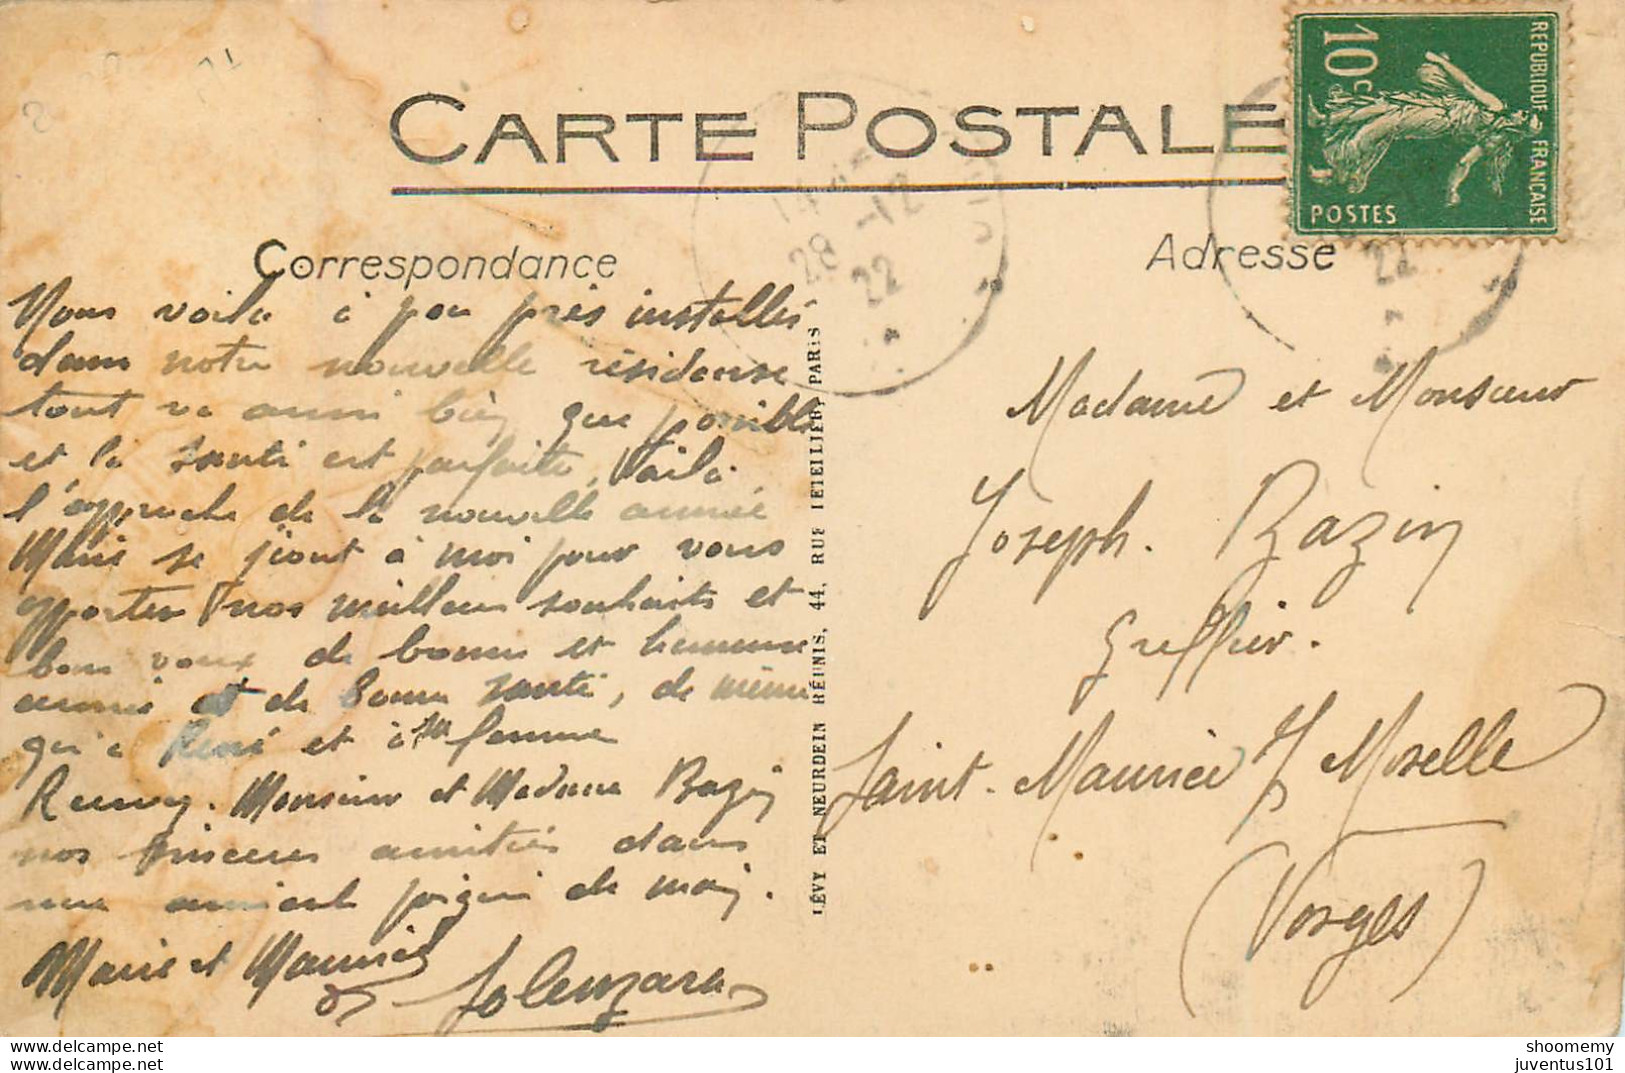 CARTE POSTALE
REPUBLIQUE FRANÇAISE
10c
POSTES
14
28 -12
22
22
Correspondance
Nous voila à peu près installés
dans notre nouvelle résidense
tout va aussi bien que possible
et la santé est parfaite, Voilà
l'approche de la nouvelle année
Marie se joint à moi pour vous
apporter nos meilleurs souhaits et
bons voeux de bonne et heureuse
année et de bonne santé, de même
qu'à René et à sa femme
Monsieur et Madame Bazin
nos sincères amitiés dans
une amicale poignée de main.
Marie et Maurice
LÉVY ET NEURDEIN RÉUNIS, 44, RUE LETELLIER, PARIS
Adresse
Madame et Monsieur
Joseph. Bazin
Greffier.
Saint-Maurice s/ Moselle
(Vosges)
www.delcampe.net
www.delcampe.net
shoomemy
juventus101